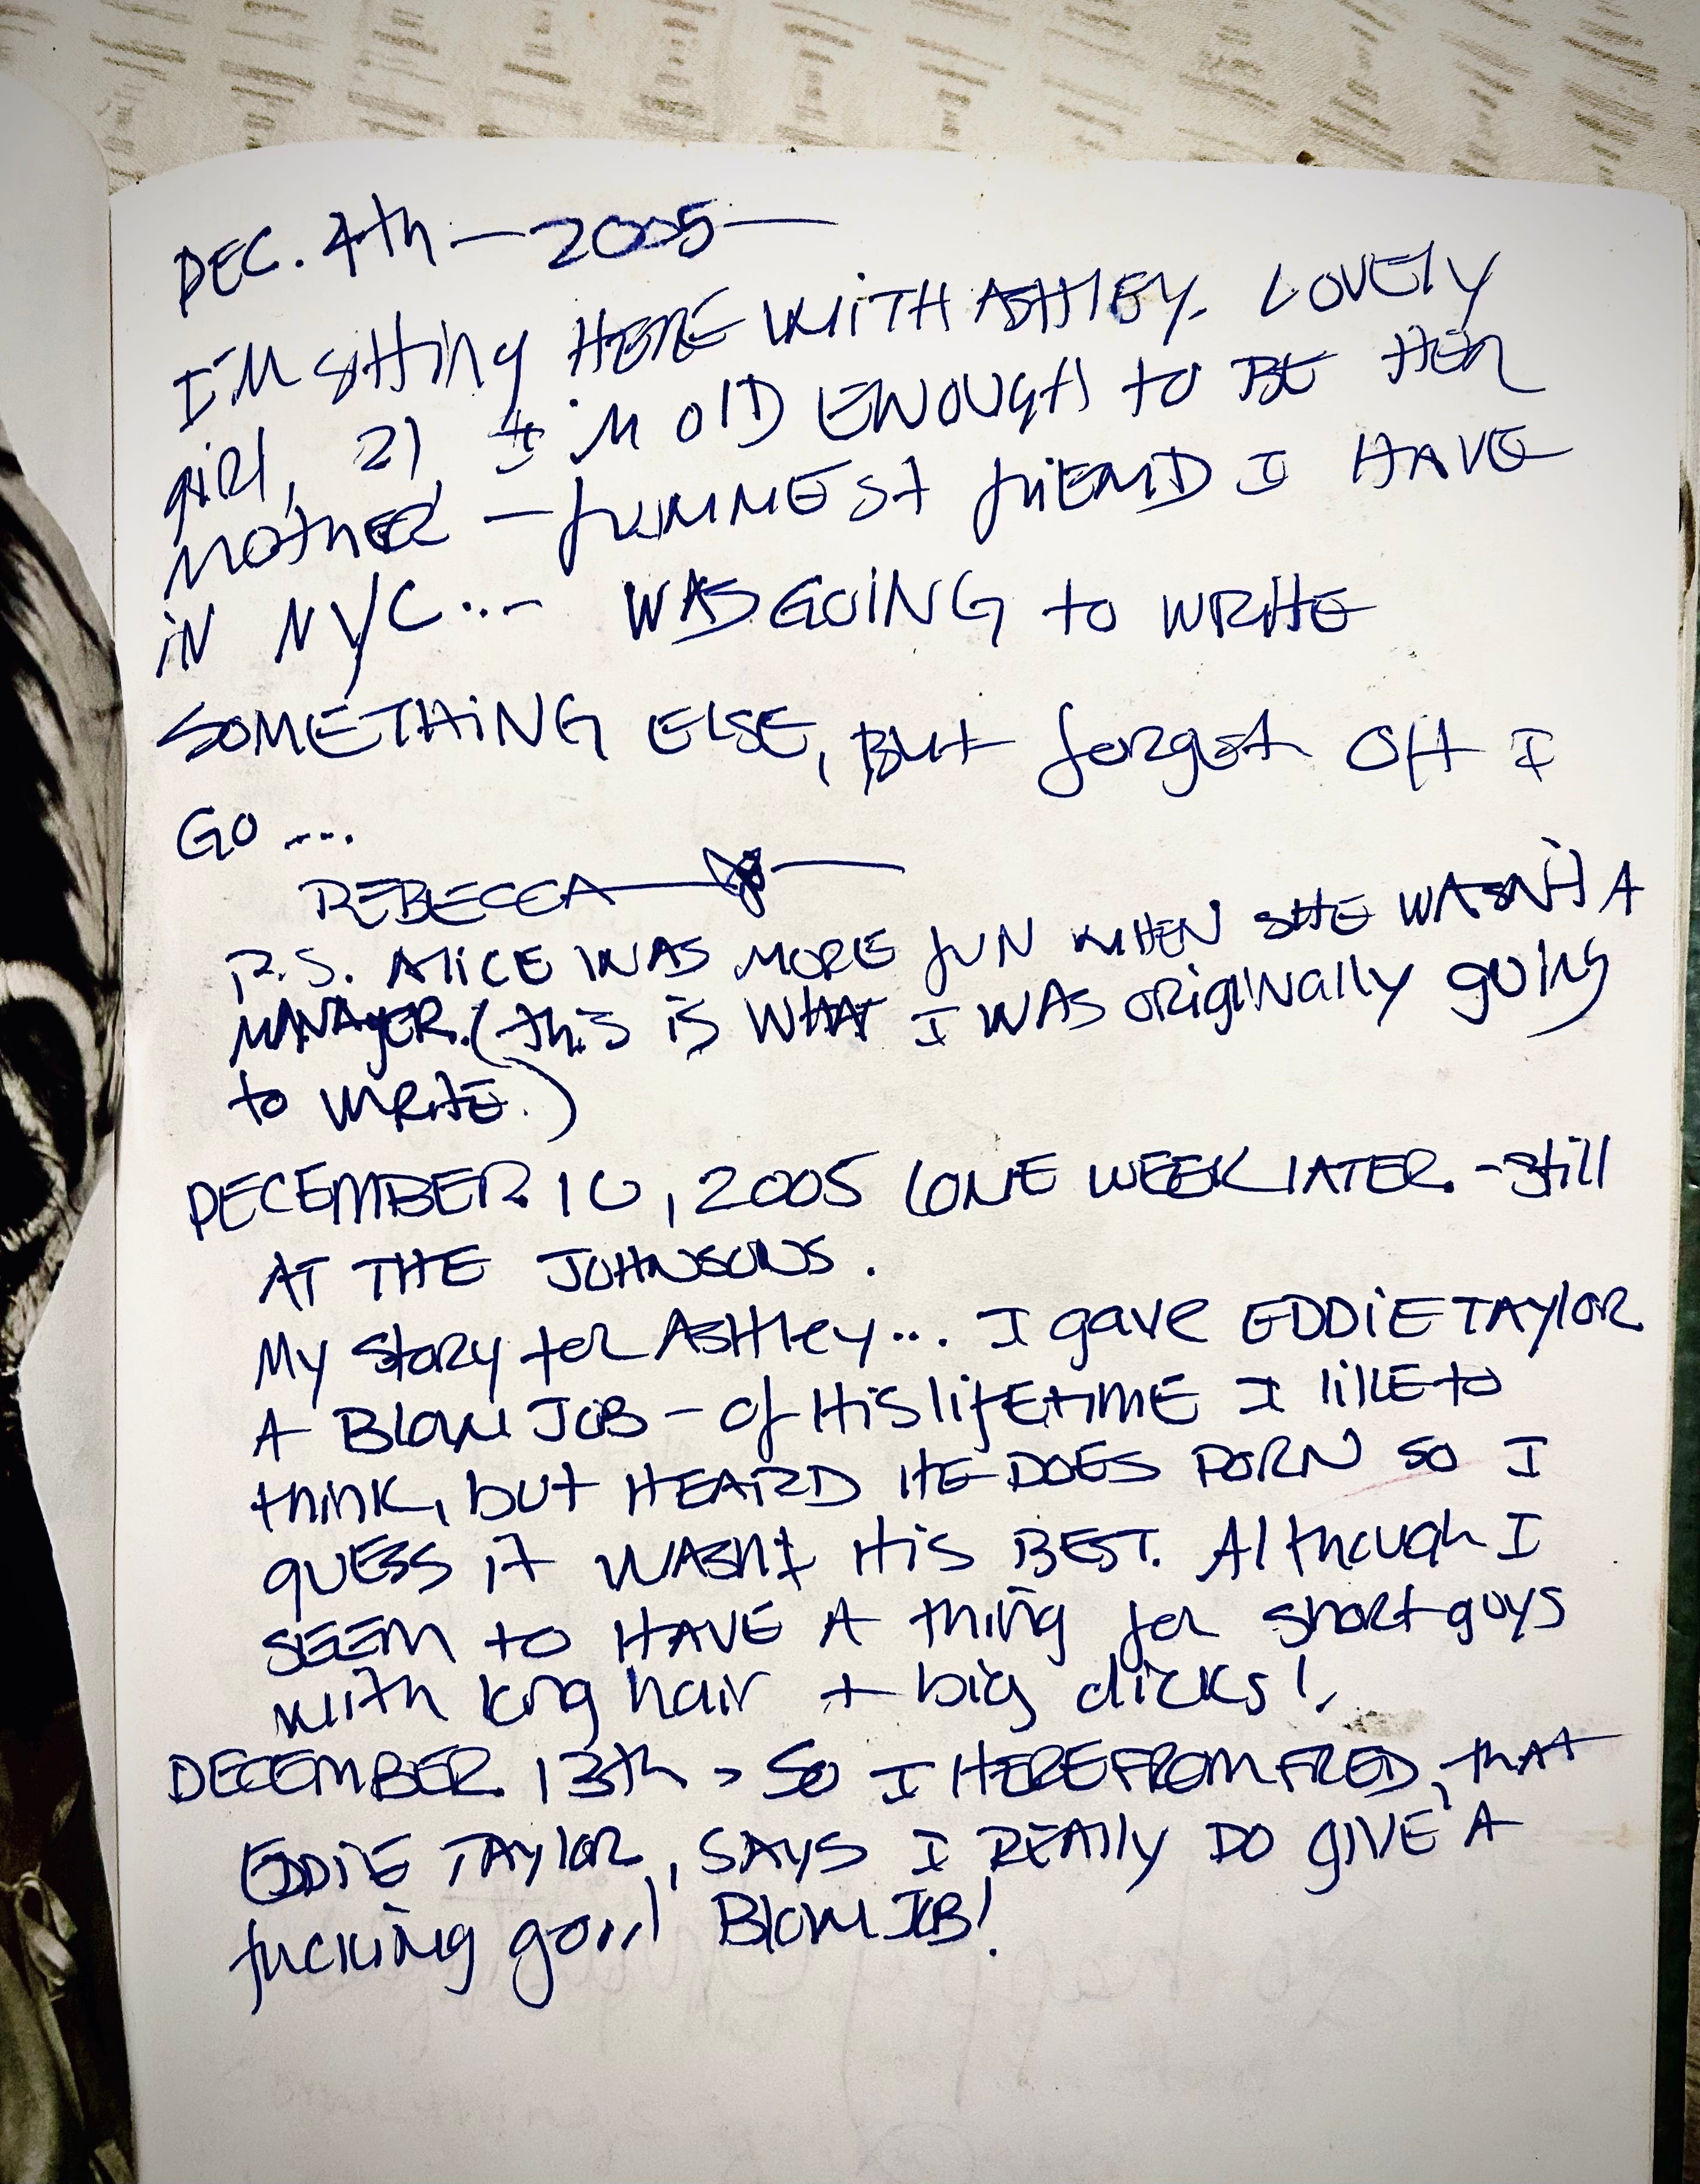 DEC. 4th — 2005 —
I'M sitting HERE WITH ASHLEY. LOVELY
girl, 21, I'M OLD ENOUGH to BE HER
MOTHER — funniest friend I HAVE
IN NYC... WAS GOING to WRITE
SOMETHING ELSE, BUT forgot Off I
GO ...
REBECCA
P.S. ALICE WAS MORE fUN WHEN SHE WASN'T A
MANAGER. (this is WHAT I WAS ORiginally going
to WRITE.)
DECEMBER 10, 2005 (ONE WEEK LATER. - still
AT THE JOHNSONS.
My Story for Ashley... I gave EDDIE TAYLOR
A BLOW JOB - of HIS lifETIME I likE to
think, but HEARD HE DOES PORN so I
guess it WASN't His BEST. Although I
SEEM to HAVE A thing for short guys
with long hair + big dicks!
DECEMBER 13th > So I HERE FROM FRED, that
EDDIE TAYLOR, SAYS I REAlly DO giVE A
fucking good BLOW JOB!